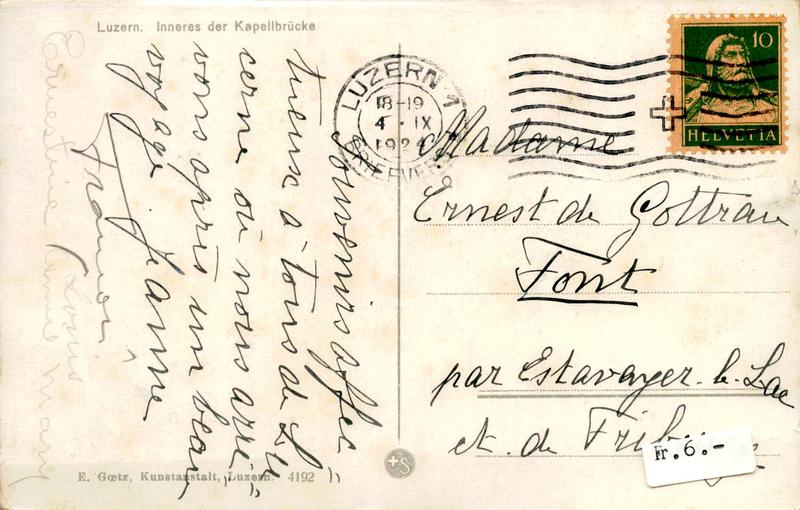 Luzern. Inneres der Kapellbrücke
Souvenirs affec=
tueux à tous de Lu
cerne où nous arri=
vons après un beau
voyage. Jeanne
François
Ernestine Louis
Anne Mary
LUZERN 1
18-19
4·IX
1924
BRIEFVERS
10
HELVETIA
Madame
Ernest de Gottrau
Font
par Estavayer-le-Lac
et. de Frib
Fr.6.-
E. Gœtz, Kunstanstalt, Luzern. 4192